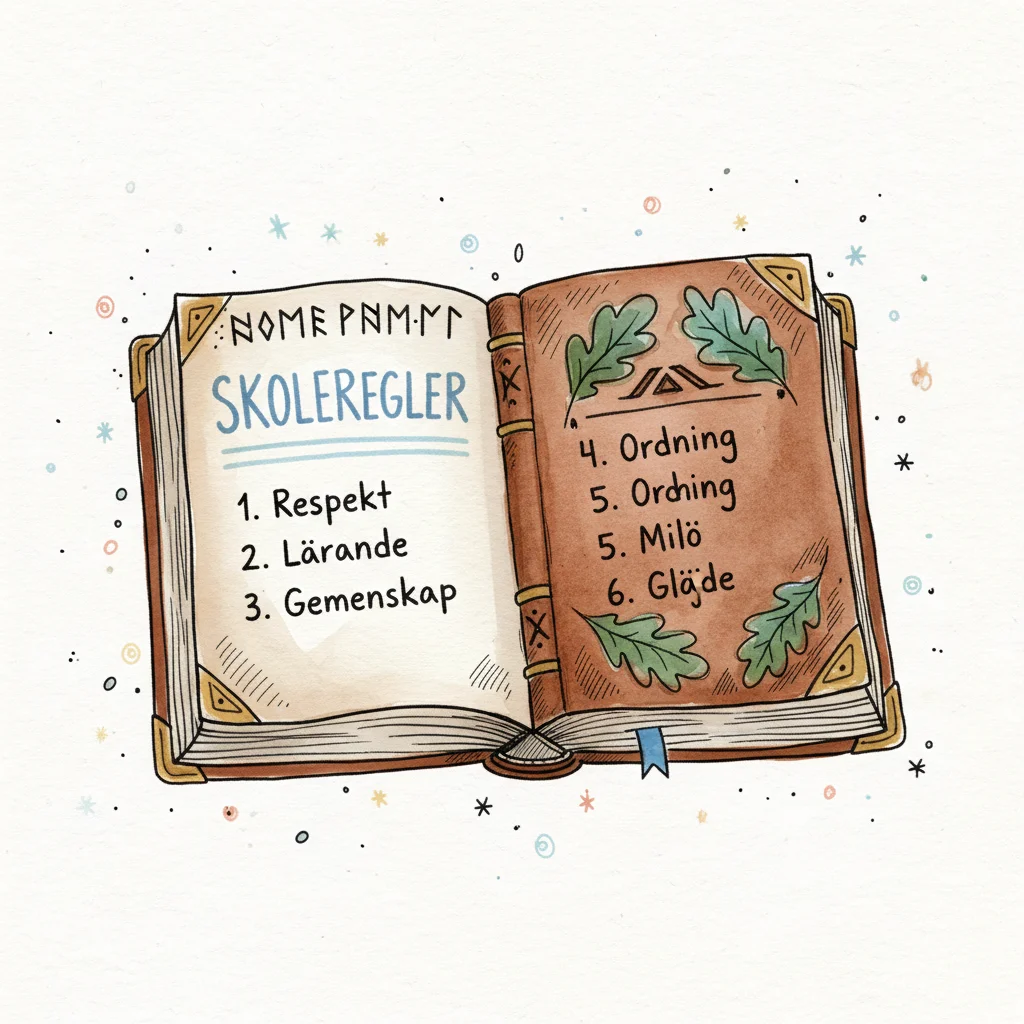 SKOLEREGLER
1. Respekt
2. Lärande
3. Gemenskap
4. Ordning
5. Ordning
5. Milö
6. Gläjde